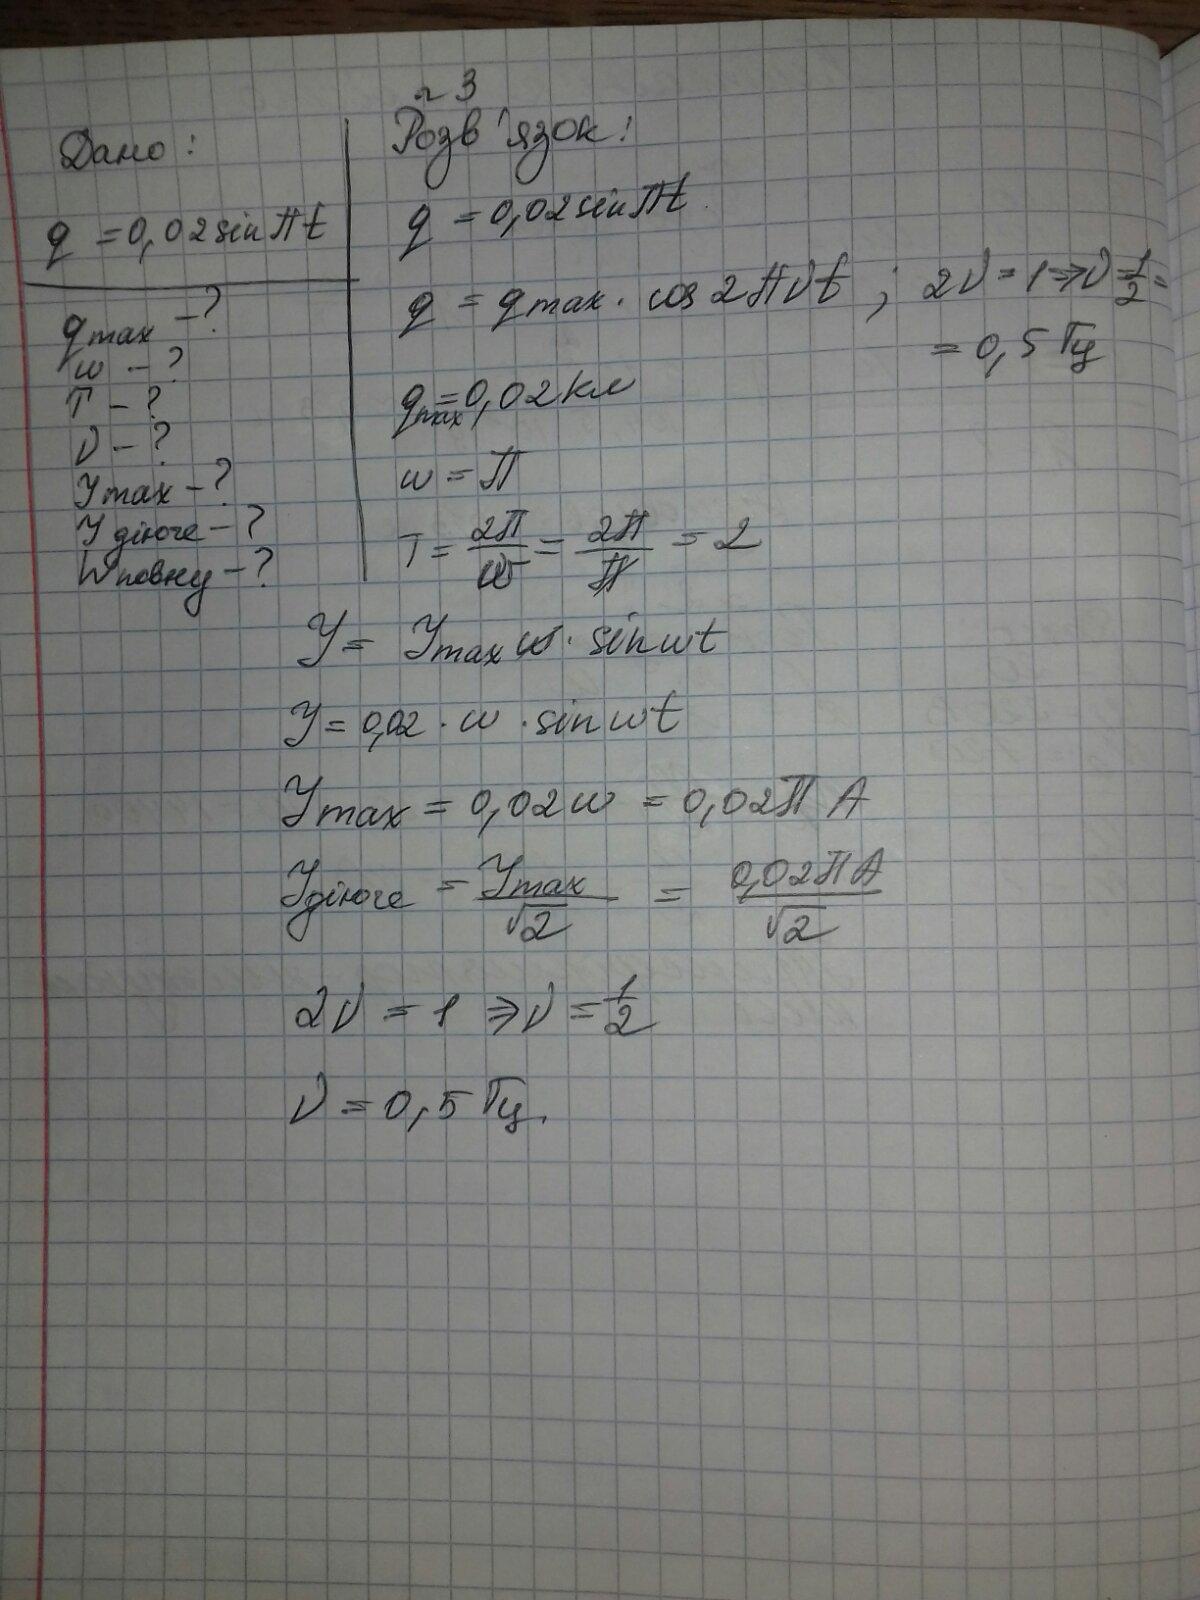 № 3
Дано:
q = 0,02 sin π t
qmax - ?
w - ?
T - ?
ν - ?
Ymax - ?
Y діюче - ?
Wповну - ?
Розв'язок:
q = 0,02 sin πt.
q = qmax · cos 2πνt ; 2ν = 1 ⇒ ν = 1/2 =
= 0,5 Гц
qmax = 0,02 Кл
w = π
T = 2π/w = 2π/π = 2
Y = Ymax w · sin wt
Y = 0,02 · w · sin wt
Ymax = 0,02 w = 0,02π A
Yдіюче = Ymax/√2 = 0,02π A/√2
2ν = 1 ⇒ ν = 1/2
ν = 0,5 Гц.